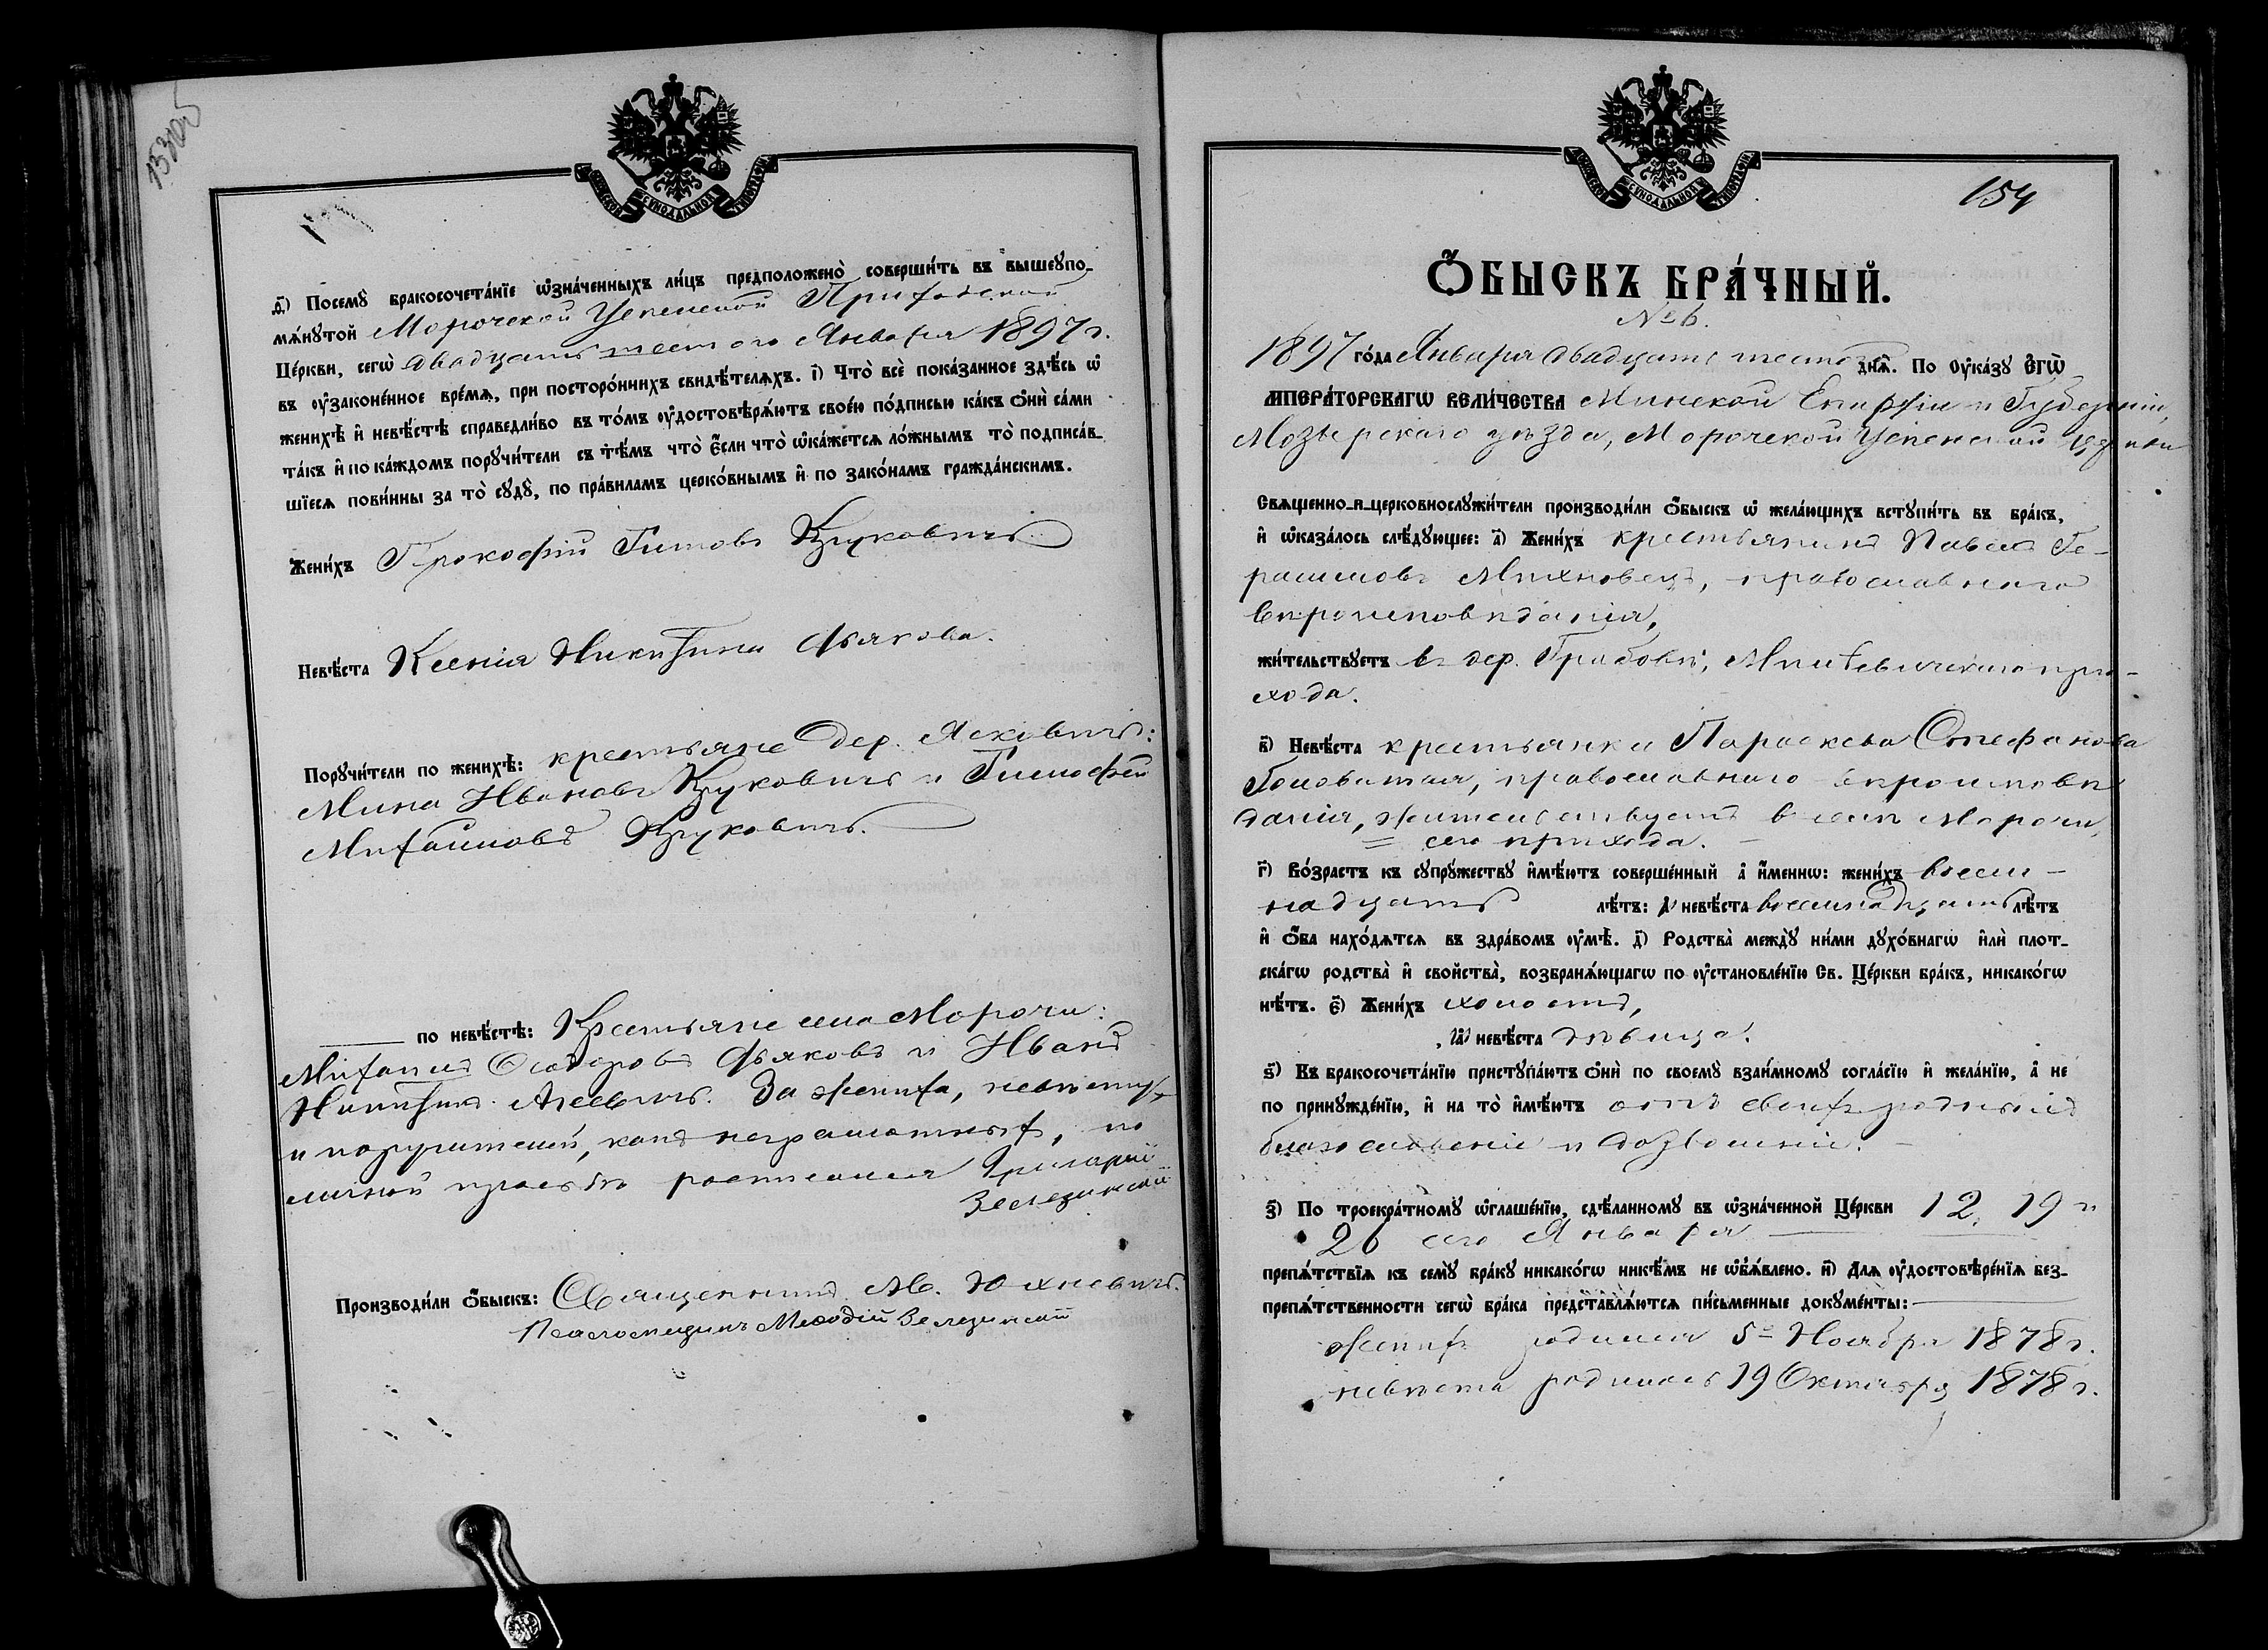 153об
МОСКОВСКОЙ СѴНОДАЛЬНОЙ ТИПОГРАФІИ
д҃і) Посемꙋ̀ бракосочета́нїе ѡ҆зна́ченныхъ ли́цъ предположено̀ соверши́ть въ вышеꙋпо-
мѧ́нꙋтой Морочской Успенской Приходской
Це́ркви, сегѡ̀ двадцать шестого Января 1897 г.
въ ᲂу҆законе́нное вре́мѧ, при посторо́ннихъ свидѣ́телѧхъ. і҃) Что̀ всѐ пока́занное здѣ́сь ѡ҆
женихѣ̀ и҆ невѣ́стѣ справедли́во въ то́мъ ᲂу҆достовѣрѧ́ютъ свое́ю по́дписью ка́къ ѻ҆нѝ са́ми
та́къ и҆ по ка́ждомъ порꙋчи́тели съ тѣ́мъ что̀ є҆́сли что̀ ѡ҆ка́жетсѧ ло́жнымъ то̀ подписа́в-
шїесѧ пови́нны за то̀ сꙋдꙋ̀, по пра́виламъ церко́внымъ и҆ по зако́намъ гражда́нскимъ.
Жени́хъ Прокофій Титовъ Круковичъ
Невѣ́ста Ксенія Никитина Дьякова.
Порꙋчи́тели по женихѣ̀: крестьяне дер. Ясковичъ:
Мина Ивановъ Круковичъ и Тимофей
Михайловъ Круковичъ.
по невѣ́стѣ: Крестьяне села Морочи:
Михаилъ Ѳеодоровъ Дьяковъ и Иванъ
Никитинъ. За жениха, невѣсту
и поручителей, какъ неграмотныхъ, по
личной просьбѣ росписался Григорій
Зелезинскій
Производи́ли ѻ҆́быскъ: Священникъ М. Юхневичъ.
Псаломщикъ Меѳодій Зелезинскій
МОСКОВСКОЙ СѴНОДАЛЬНОЙ ТИПОГРАФІИ
154
Ѻ҆́БЫСКЪ БРА́ЧНЫЙ.
№ 6.
1897 го́да Января двадцать шестого днѧ̀. По ᲂу҆ка́зꙋ Є҆гѡ̀
Импера́торскагѡ вели́чества Минской Епархіи и Губерніи,
Мозырскаго уѣзда, Морочской Успенской церкви
Свѧщенно-и-церковнослꙋжи́тели производи́ли ѻ҆́быскъ ѡ҆ жела́ющихъ встꙋпи́ть въ бра́къ,
и҆ ѡ҆каза́лось слѣ́дꙋющее: а҃) Жени́хъ крестьянинъ Павелъ Ге-
расимовъ Михновецъ, православнаго
вѣроисповѣданія,
жи́тельствꙋетъ въ дер. Грабовѣ, Милевичскаго при-
хода.
в҃) Невѣ́ста крестьянка Параскева Стефанова
Головатая, православнаго вѣроисповѣ
данія, жительствуетъ в селѣ Морочи,
сего прихода.
г҃) Во́зрастъ къ сꙋпрꙋ́жествꙋ и҆мѣ́ютъ соверше́нный а҆ и҆́меннѡ: жени́хъ восем-
надцать лѣ́тъ: а҆ невѣ́ста восемнадцать лѣ́тъ
и҆ ѻ҆́ба нахо́дѧтсѧ въ здра́вомъ ᲂу҆мѣ̀. д҃) Родства̀ междꙋ̀ ни́ми дꙋхо́внагѡ и҆лѝ плот-
скагѡ родства̀ и҆ свойства̀, возбранѧ́ющагѡ по ᲂу҆становле́нїю Св. Це́ркви бра́къ, никако́гѡ
нѣ́тъ. є҃) Жени́хъ холостъ,
а҆ невѣ́ста дѣвица.
ѕ҃) Къ бракосочета́нїю пристꙋпа́ютъ ѻ҆нѝ по своемꙋ̀ взаи́мномꙋ согла́сїю и҆ жела́нїю, а҆ не
по принꙋжде́нїю, и҆ на то̀ и҆мѣ́ютъ отъ своихъ родныхъ
благословеніе и дозволеніе.
з҃) По троекра́тномꙋ ѡ҆глаше́нїю, сдѣ́ланномꙋ въ ѡ҆зна́ченной Це́ркви 12, 19 и
26 сего Января
препѧ́тствїѧ къ семꙋ̀ бра́кꙋ никако́гѡ никѣ́мъ не ѡ҆б̾ѧ́влено. и҃) Длѧ ᲂу҆достовѣре́нїѧ без-
препѧ́тственности сегѡ̀ бра́ка представлѧ́ютсѧ пи́сьменные докꙋме́нты:
женихъ родился 5го Ноября 1878 г.
невѣста родилась 19 Октября 1878 г.